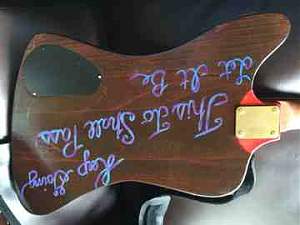 Let It Be
This To Shall Pass
Keep Going